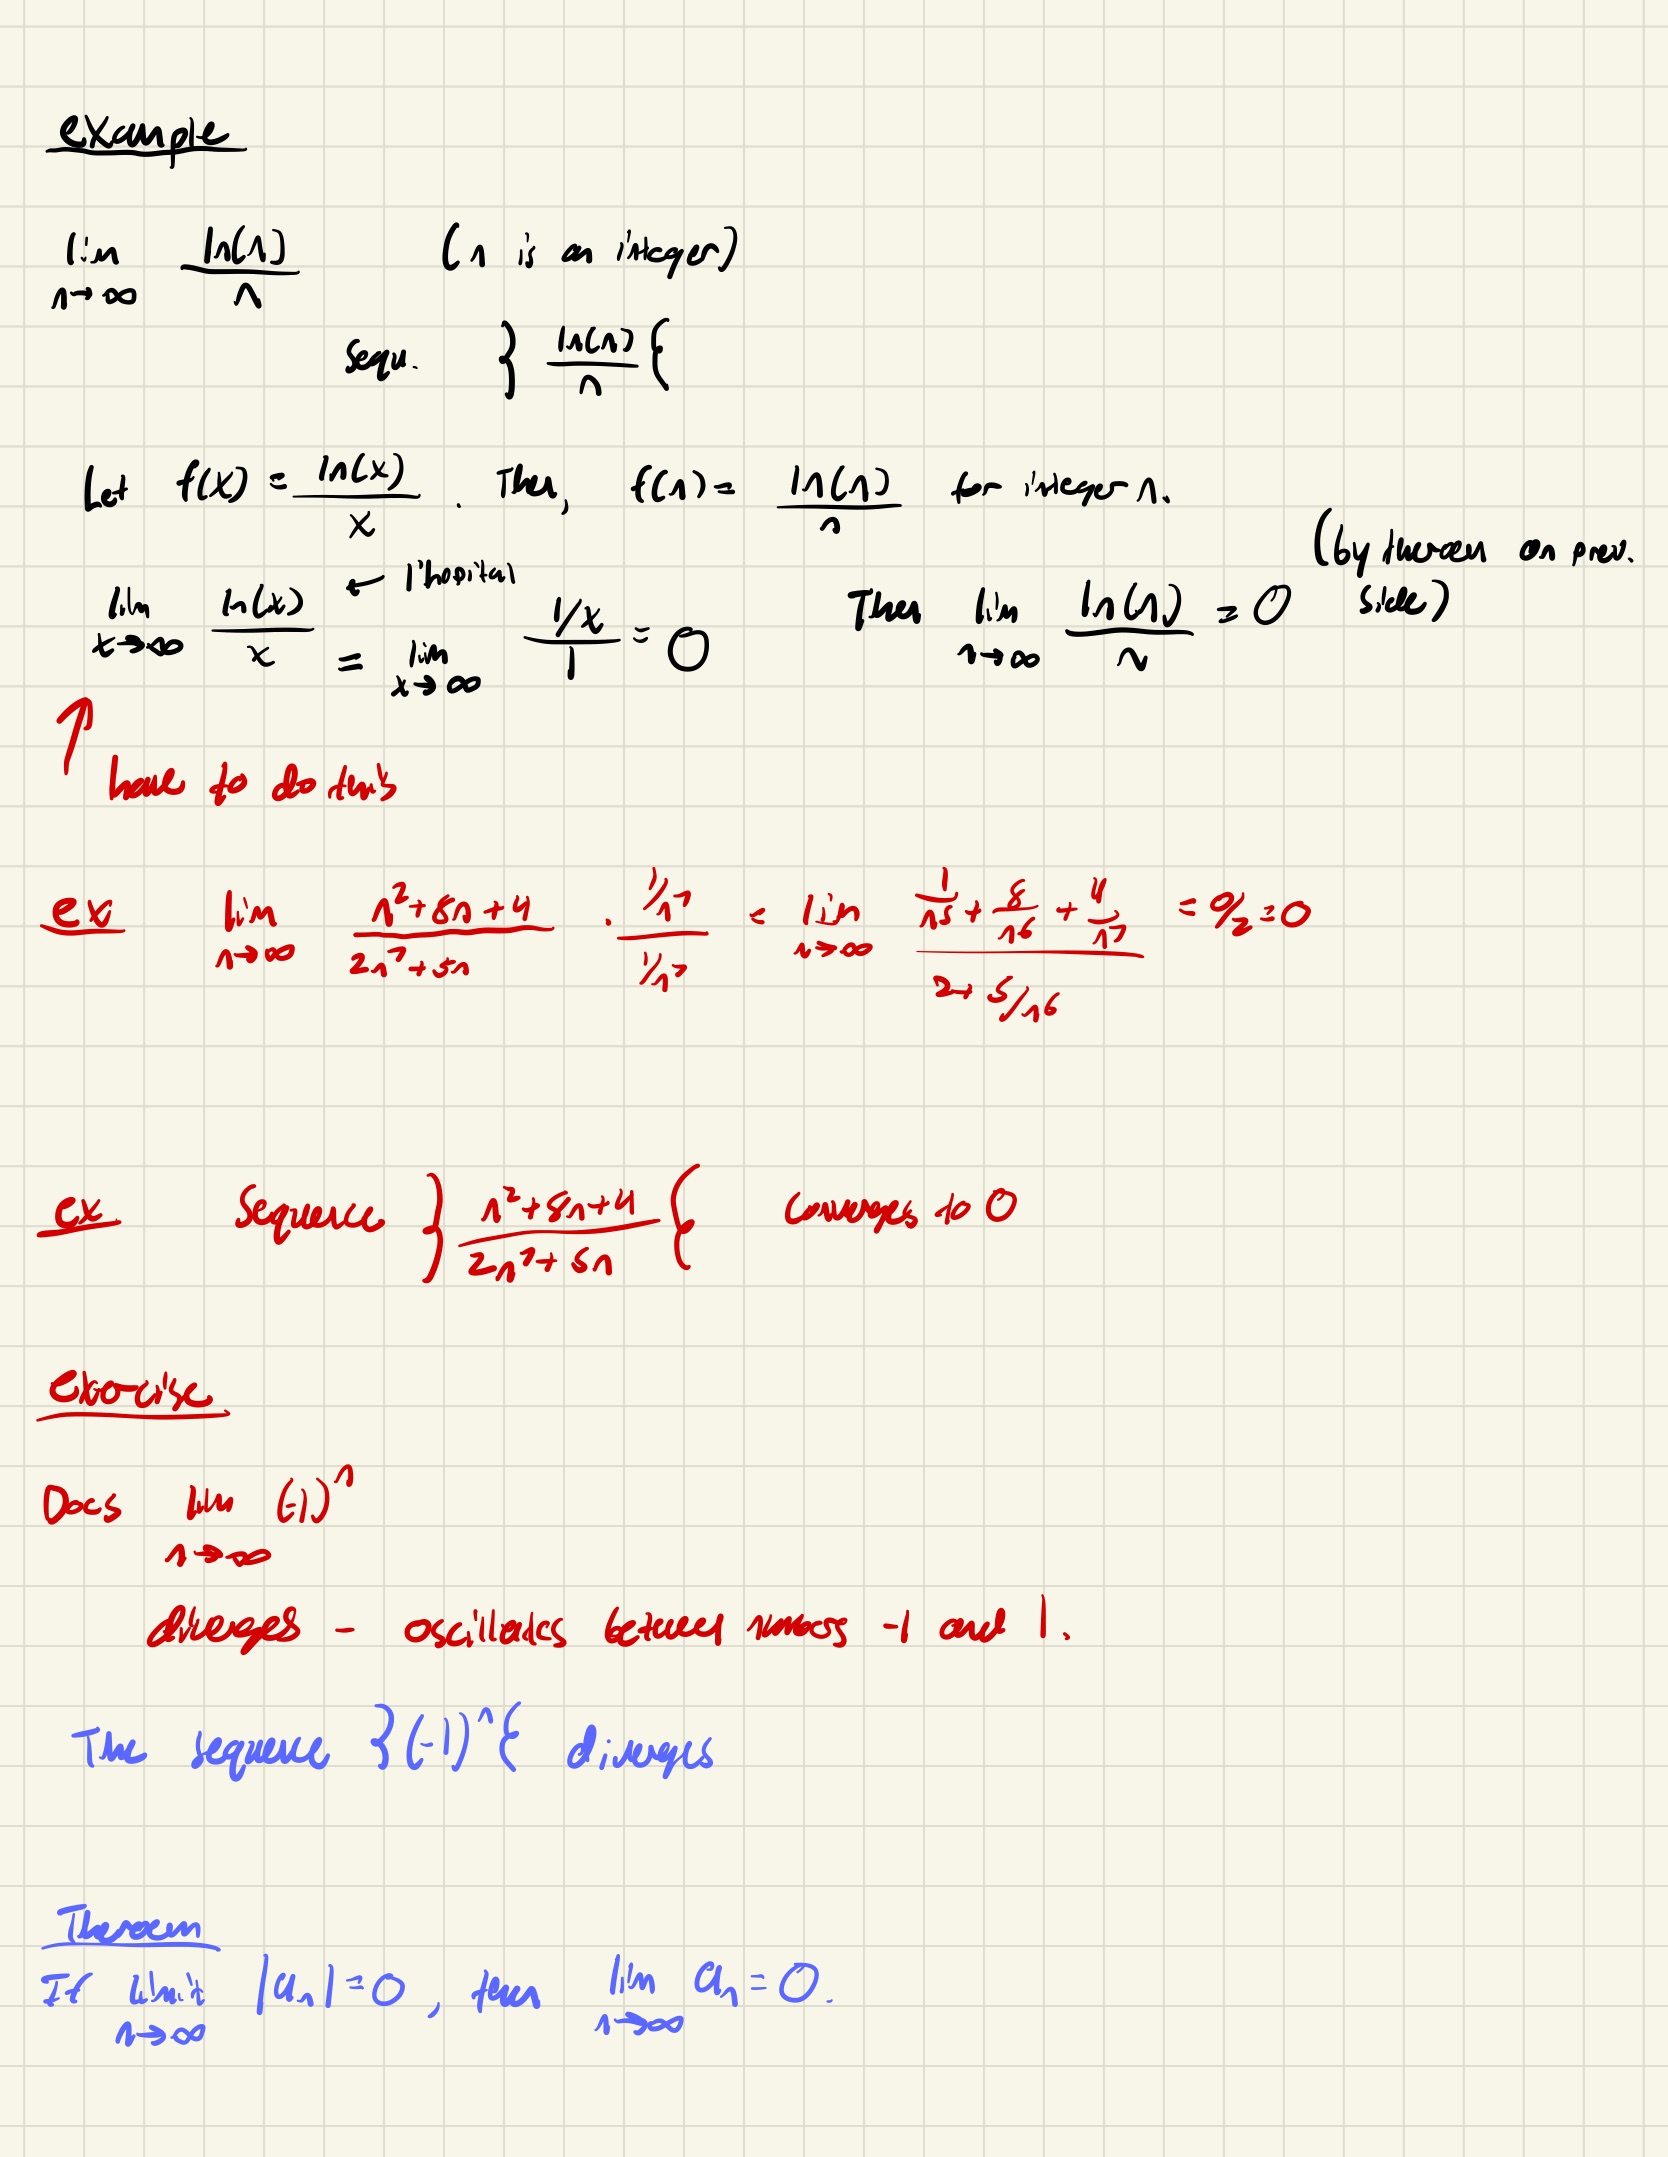 example
lim n→∞ ln(n)/n (n is an integer)
sequ. } ln(n)/n {
Let f(x) = ln(x)/x . Then, f(n) = ln(n)/n for integer n.
(by theroem on prev. side)
← l'hopital
lim x→∞ ln(x)/x = lim x→∞ (1/x)/1 = 0 Then lim n→∞ ln(n)/n = 0
↑ have to do this
ex lim n→∞ (n²+8n+4)/(2n⁷+5n) · (1/n⁷)/(1/n⁷) = lim n→∞ (1/n⁵ + 8/n⁶ + 4/n⁷)/(2+5/n⁶) = 0/2 = 0
ex Sequence } (n²+8n+4)/(2n⁷+5n) { converges to 0
exercise
Does lim n→∞ (-1)ⁿ
diverges - oscillates between numbers -1 and 1.
The sequence }(-1)ⁿ{ diverges
Theroem
If limit n→∞ |aₙ| = 0, then lim n→∞ aₙ = 0.